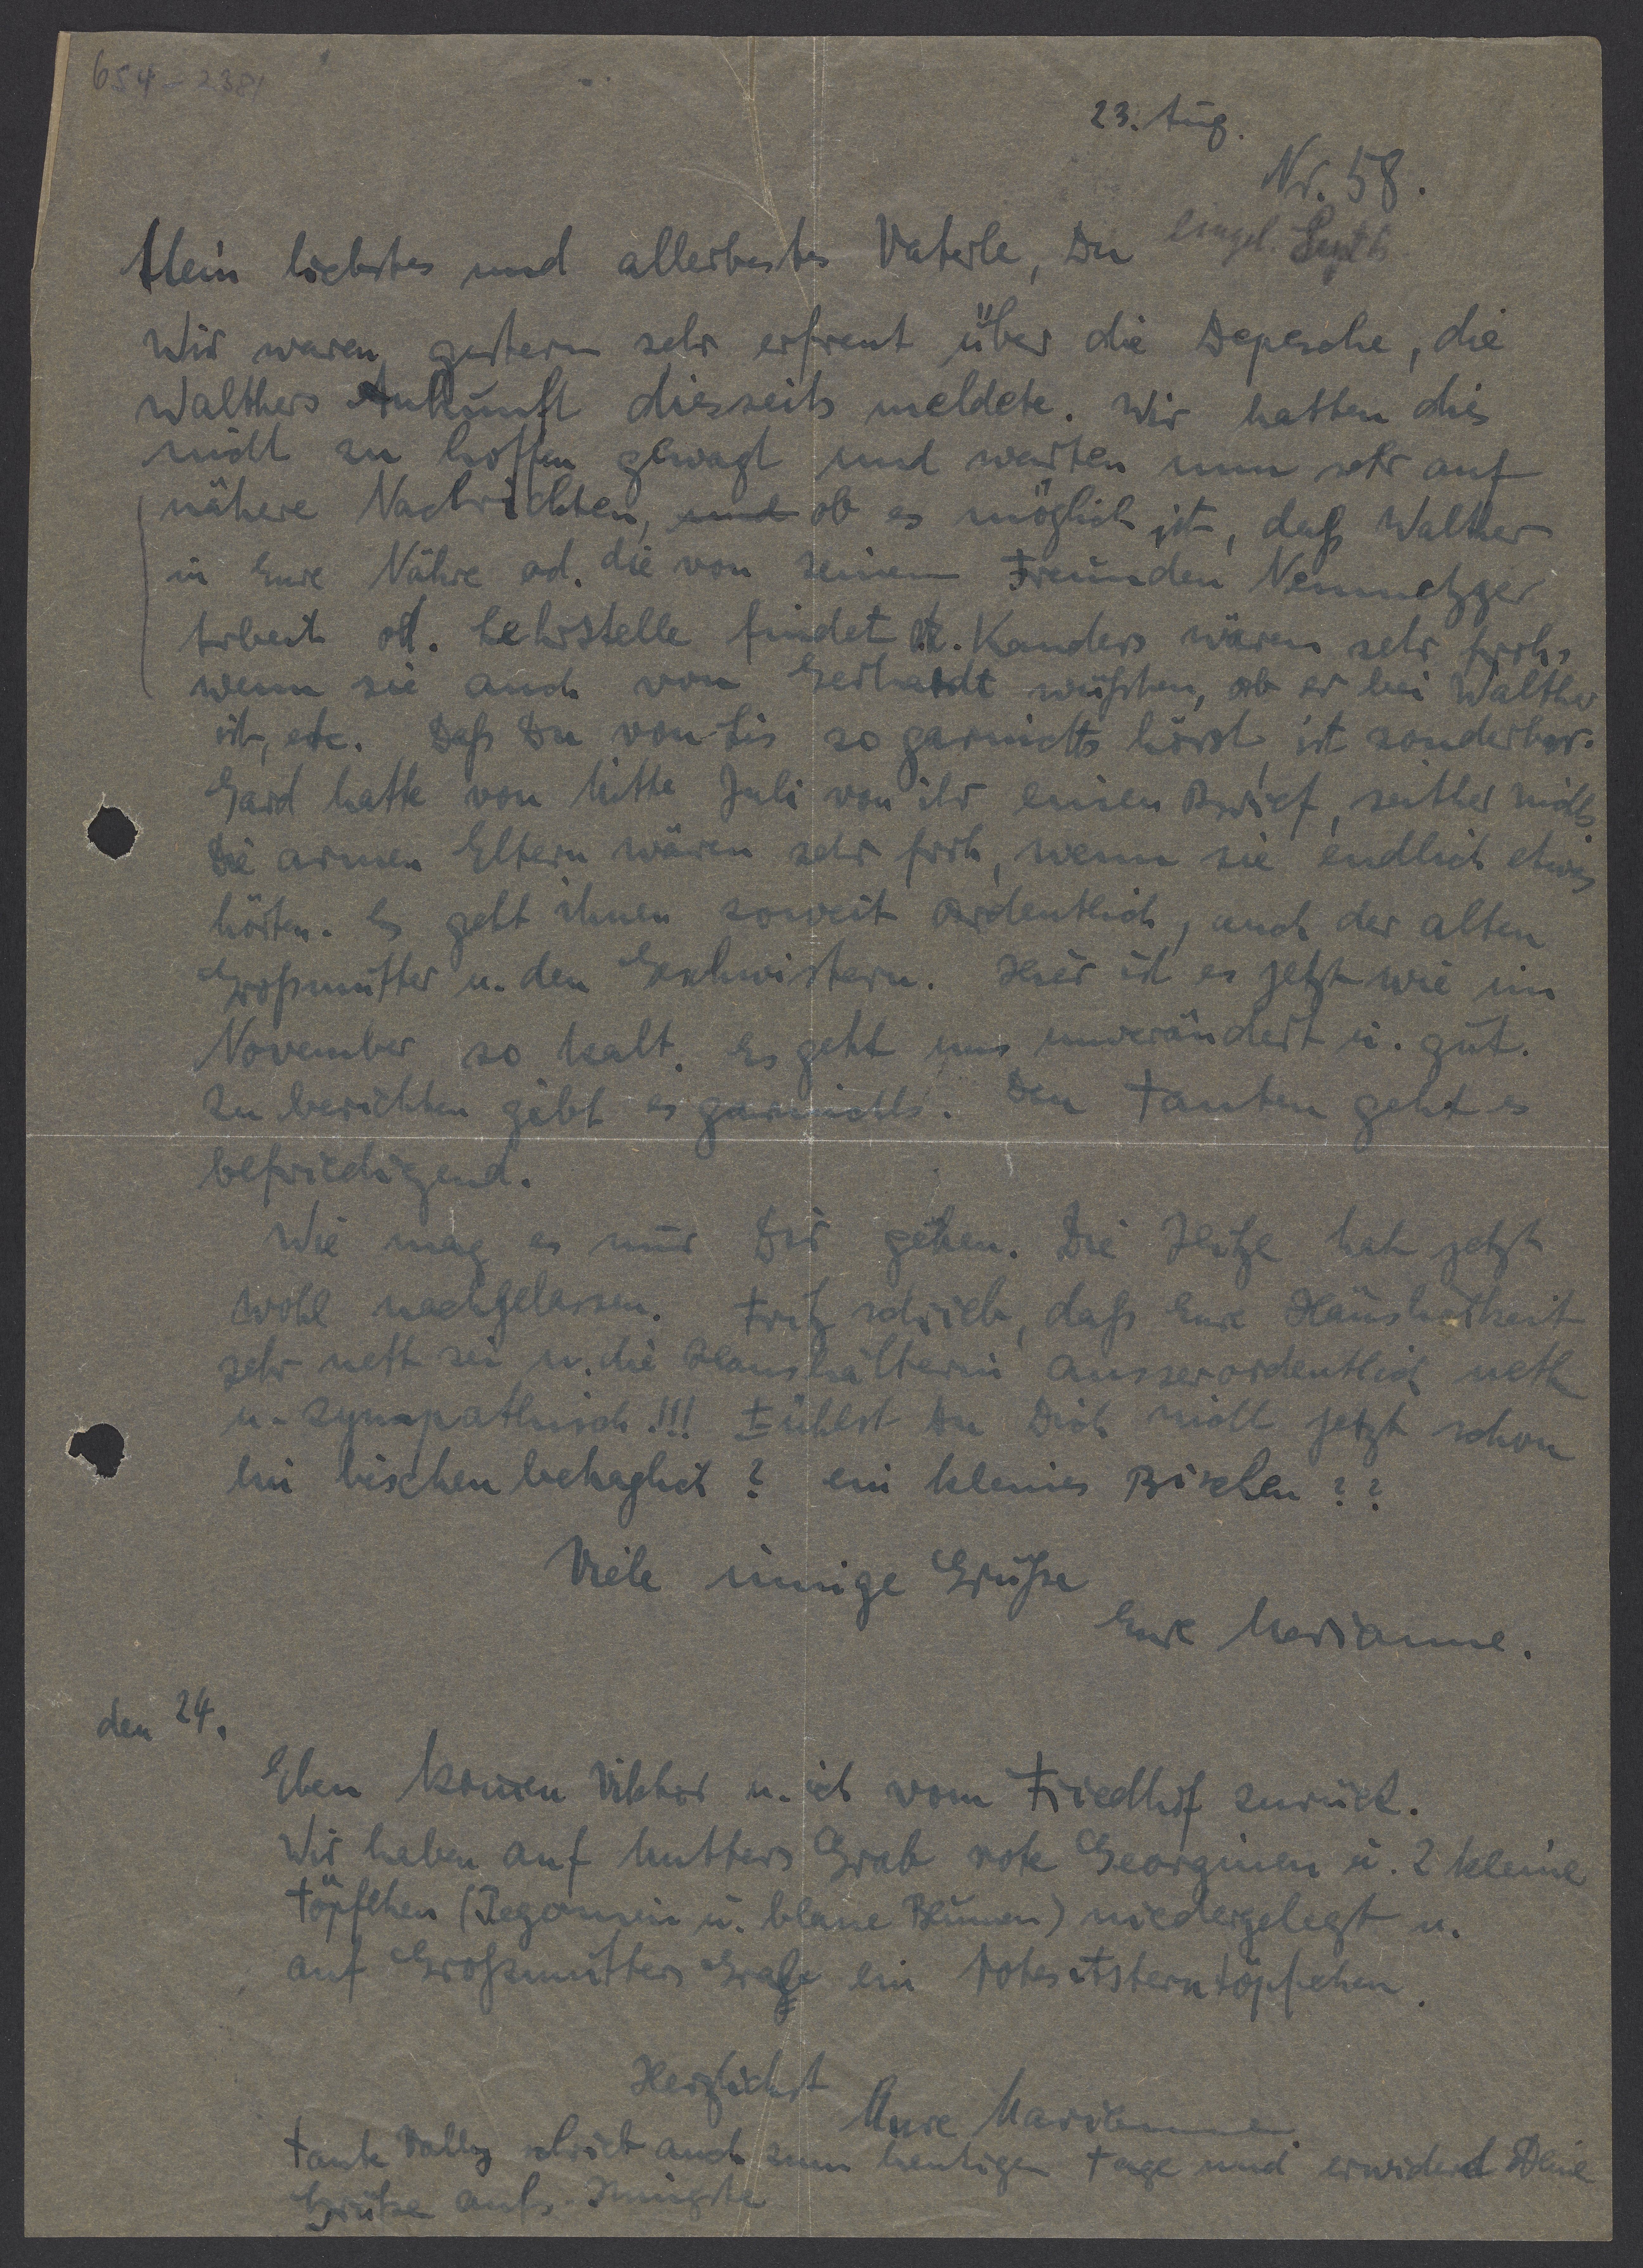 654 - 2381
23. Aug.
Nr. 58.
Mein liebstes und allerbestes Vaterle, Du
eingel. Sept.
Wir waren gestern sehr erfreut über die Depesche, die
Walthers Ankunft diesseits meldete. Wir hatten dies
nicht zu hoffen gewagt und warten nun sehr auf
nähere Nachrichten, und ob es möglich ist, daß Walther
in Eure Nähre od. die von seinem Freunden Neumetzger
Arbeit od. Lehrstelle findet. Kanders wären sehr froh,
wenn sie auch von Gerhardt wüßten, ob er bei Walther
ist, etc. Daß Du von Lis so garnichts hörst, ist sonderbar.
Gard hatte von Mitte Juli von ihr einen Brief, seither nichts
Die armen Eltern wären sehr froh, wenn sie endlich etwas
hörten. Es geht ihnen soweit ordentlich, auch der alten
Großmutter u. den Geschwistern. Hier ist es jetzt wie im
November so kalt. Es geht uns unverändert u. gut.
Zu berichten gibt es garnichts. Den Tanten geht es
befriedigend.
Wie mag es nur Dir gehen. Die Hitze hat jetzt
wohl nachgelassen. Fritz schrieb, daß Eure Häuslichkeit
sehr nett sei u. die Haushälterin ausserordentlich nett
u. sympathisch!!! Fühlst Du Dich nicht jetzt schon
ein bischen behaglich? ein kleines Bischen??
Viele innige Grüße
Eure Marianne.
den 24.
Eben komen Viktor u. ich vom Friedhof zurück.
Wir haben auf Mutters Grab rote Georginen u. 2 kleine
Töpfchen (Begonien u. blaue Blumen) niedergelegt u.
auf Großmutters Grab ein rotes Asterntöpfchen.
Herzlichst
Eure Marianne
Tante Vally schrieb auch zum heutigen Tage und erwidert Deine
Grüße aufs Innigste